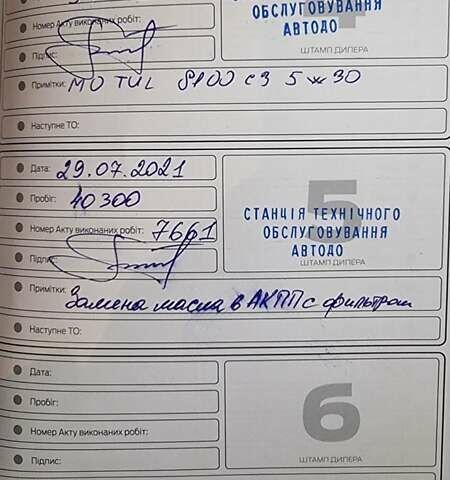 ОБСЛУГОВУВАННЯ
АВТОДО
Номер Акту виконаних робіт:
Підпис:
ШТАМП ДИЛЕРА
Примітки: MOTUL 8100 C3 5W30
Наступне ТО:
Дата: 29.07.2021
Пробіг: 40300
5
СТАНЦІЯ ТЕХНІЧНОГО
ОБСЛУГОВУВАННЯ
АВТОДО
Номер Акту виконаних робіт: 7661
Підпис:
ШТАМП ДИЛЕРА
Примітки: Замена масла в АКПП с фильтром
Наступне ТО:
Дата:
Пробіг:
6
Номер Акту виконаних робіт:
Підпис:
ШТАМП ДИЛЕРА